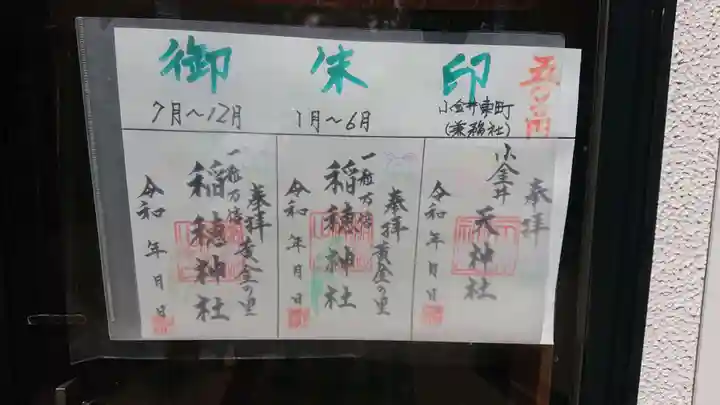 御朱印
五〇〇円
7月～12月
1月～6月
小金井東町
(兼務社)
奉拝
一粒万倍 黄金の里
稲穂神社
令和 年 月 日
奉拝
一粒万倍 黄金の里
稲穂神社
令和 年 月 日
奉拝
小金井
天神社
令和 年 月 日